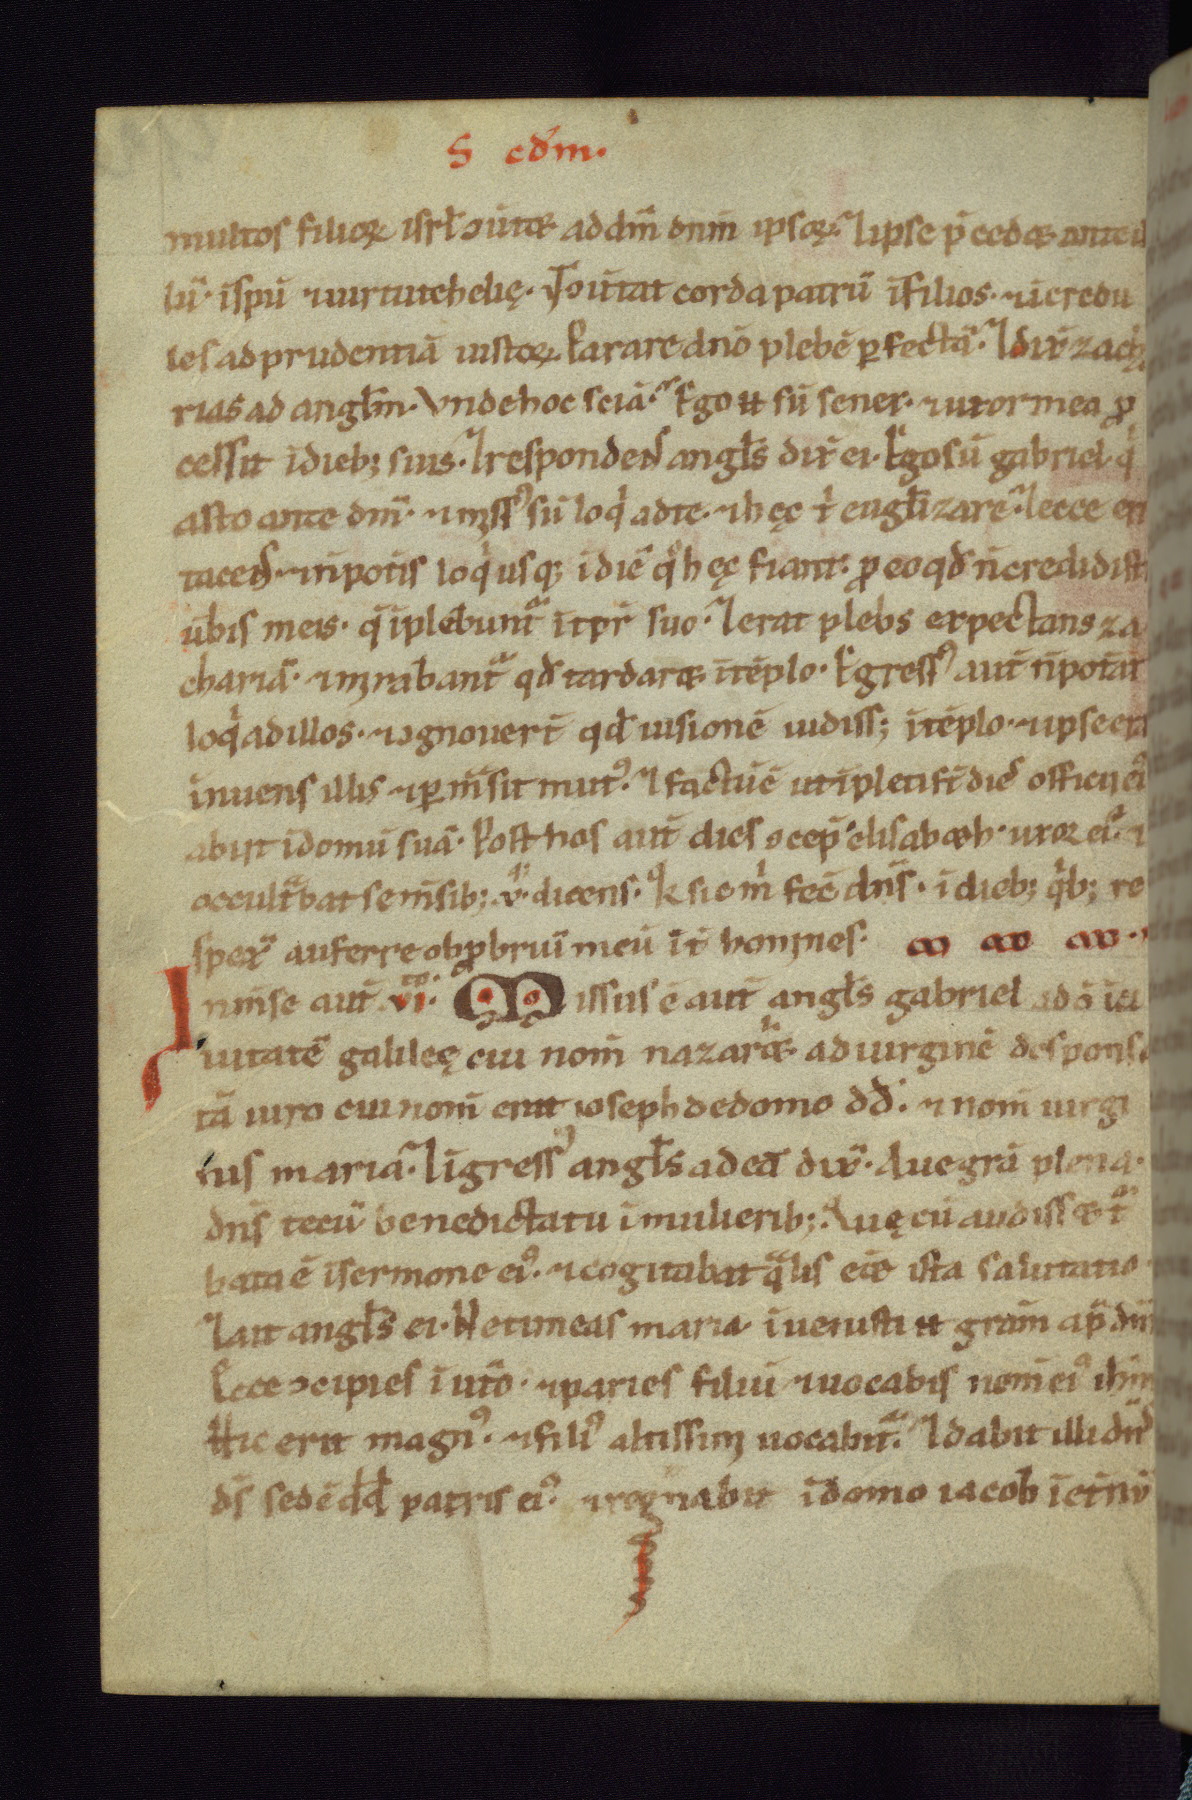 S cdm.
multos filioꝝ isrł ɔuᷓtet ad dm̄ dnm̄ ipsoꝝ. ⁊ ipse p̄cedet ante il
lū. ī spū ⁊ uirtute helię. Vt ɔuᷓtat corda patrū ī filios. ⁊ īcredu
les ad prudentiā iustoꝝ. Parare dnō plebē ꝑfectā. ⁊ dix̄ zacha
rias ad angłm. Vnde hoc sciā. Ego .n. sū senex. ⁊ uxor mea ꝓ
cessit ī dieb; suis. ⁊ respondens angłs dix̄ ei. Ego sū gabriel. qⁱ
asto ante dm̄. ⁊ missꝰ sū loqⁱ ad te. ⁊ hęc tⁱ eugłizare. ⁊ ecce eri
tacens. ⁊ n̄ potis loqⁱ usq; ī diē qͦ hęc fiant. ꝓ eo qđ n̄ credidisti
ūbis meis. q̄ īplebunt᷑ ī tpr̄ suo. ⁊ erat plebs expectans za
chariā. ⁊ mirabant᷑ qđ tardaret ī tēplo. Egressꝰ aut̄ n̄ potat̄
loqⁱ ad illos. ⁊ ɔgnouert̄ qđ uisionē uidiss; ī tēplo. ⁊ ipse era
innuens illis ⁊ ꝑm̄sit mutꝰ. ⁊ factū ē ut īpleti st̄ dies officii eiꝰ
abiit ī domū suā. Post hos aut̄ dies ɔcep̄ elisabeth. uxor eiꝰ. ⁊
occultᷓbat se m̄sib; .v. dicens. Qͣ sic mⁱ fec̄ dns̄. ī dieb; qⁱb; re
spex̄ auferre obꝓbriū meū īt̄ homines.
I n m̄se aut̄ .vi.to Missus ē aut̄ angłs gabriel a dō ī ci
uitatē galileę cui nom̄ nazareth. ad uirginē desponsa
tā uiro cui nom̄ erat ioseph de domo dđ. ⁊ nom̄ uirgi
nis maria. ⁊ īgressꝰ angłs ad eā dix̄. Aue grā plena.
dns̄ tecū benedicta tu ī mulierib;. Quę cū audisset tᷓ
bata ē ī sermone eiꝰ. ⁊ cogitabat qᷓlis eēt ista salutatio.
⁊ ait angłs ei. Ne timeas maria. īuenisti .n. grām ap̄ dm̄
Ecce ɔcipies ī utō. ⁊ paries filiū ⁊ uocabis nom̄ eiꝰ ihm̄
Hic erit magnꝰ. ⁊ filiꝰ altissimi uocabit᷑. ⁊ dabit illi dns̄
ds̄ sedē dđ patris eiꝰ. ⁊ regnabit ī domo iacob ī et̄nū